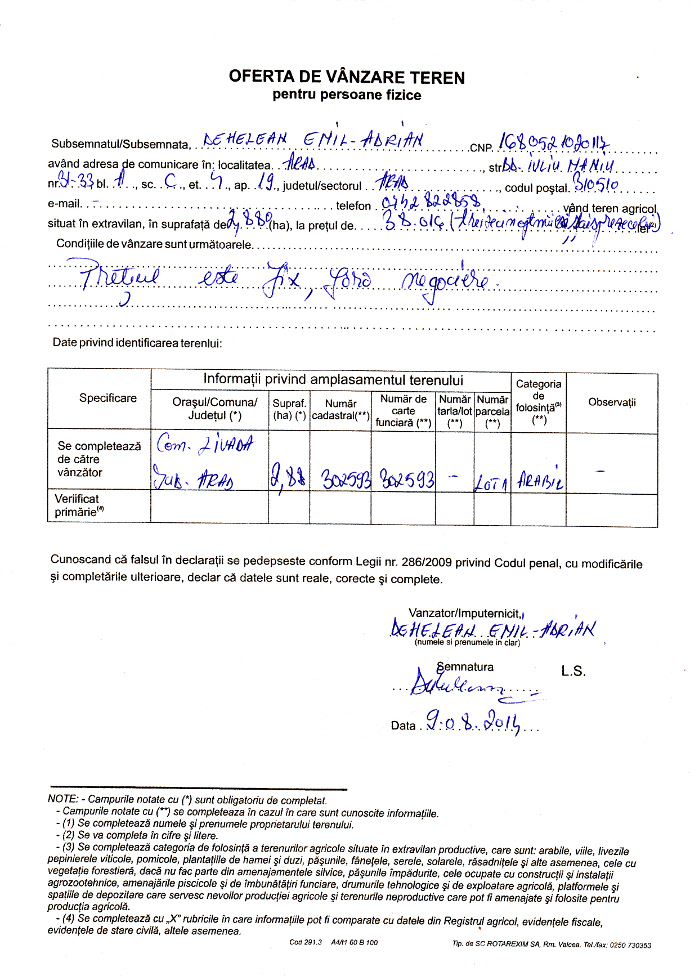 OFERTA DE VÂNZARE TEREN
pentru persoane fizice
Subsemnatul/Subsemnata, DEHELEAN EMIL-ADRIAN CNP
având adresa de comunicare în: localitatea. ARAD, str. BD. IULIU MANIU
nr. 31-33 bl. A, sc. C, et. 4, ap. 19, judeţul/sectorul ARAD, codul poştal. 310510
e-mail. - telefon 0742 822858, vând teren agricol
situat în extravilan, în suprafaţă de 2,880 (ha), la preţul de 38.016 lei
Condiţiile de vânzare sunt următoarele.
Preţul este fix, fără negociere.
Date privind identificarea terenului:
Specificare
Informaţii privind amplasamentul terenului
Categoria de folosinţă(3) (**)
Observaţii
Oraşul/Comuna/ Judeţul (*)
Supraf. (ha) (*)
Număr cadastral(**)
Număr de carte funciară (**)
Număr tarla/lot (**)
Număr parcela (**)
Se completează de către vânzător
Com. LIVADA
Jud. ARAD 2,88 302593 302593 - LOT 1 ARABIL -
Veriificat primărie(4)
Cunoscand că falsul în declaraţii se pedepseste conform Legii nr. 286/2009 privind Codul penal, cu modificările
şi completările ulterioare, declar că datele sunt reale, corecte şi complete.
Vanzator/Imputernicit,
DEHELEAN EMIL-ADRIAN
(numele si prenumele in clar)
Semnatura
L.S.
Data 9.08.2014
NOTE: - Campurile notate cu (*) sunt obligatoriu de completat.
- Campurile notate cu (**) se completeaza în cazul în care sunt cunoscite informaţiile.
- (1) Se completează numele şi prenumele proprietarului terenului.
- (2) Se va completa în cifre şi litere.
- (3) Se completează categoria de folosinţă a terenurilor agricole situate în extravilan productive, care sunt: arabile, viile, livezile
pepinierele viticole, pomicole, plantaţiile de hamei şi duzi, păşunile, fâneţele, serele, solarele, răsadniţele şi alte asemenea, cele cu
vegetaţie forestieră, dacă nu fac parte din amenajamentele silvice, păşunile împădurite, cele ocupate cu construcţii şi instalaţii
agrozootehnice, amenajările piscicole şi de îmbunătăţiri funciare, drumurile tehnologice şi de exploatare agricolă, platformele şi
spaţiile de depozitare care servesc nevoilor producţiei agricole şi terenurile neproductive care pot fi amenajate şi folosite pentru
producţia agricolă.
- (4) Se completează cu „X” rubricile în care informaţiile pot fi comparate cu datele din Registrul agricol, evidenţele fiscale,
evidenţele de stare civilă, altele asemenea.
Cod 291.3 A4/t1 60 B 100 Tip. de SC ROTAREXIM SA, Rm. Valcea. Tel./fax: 0250 730353